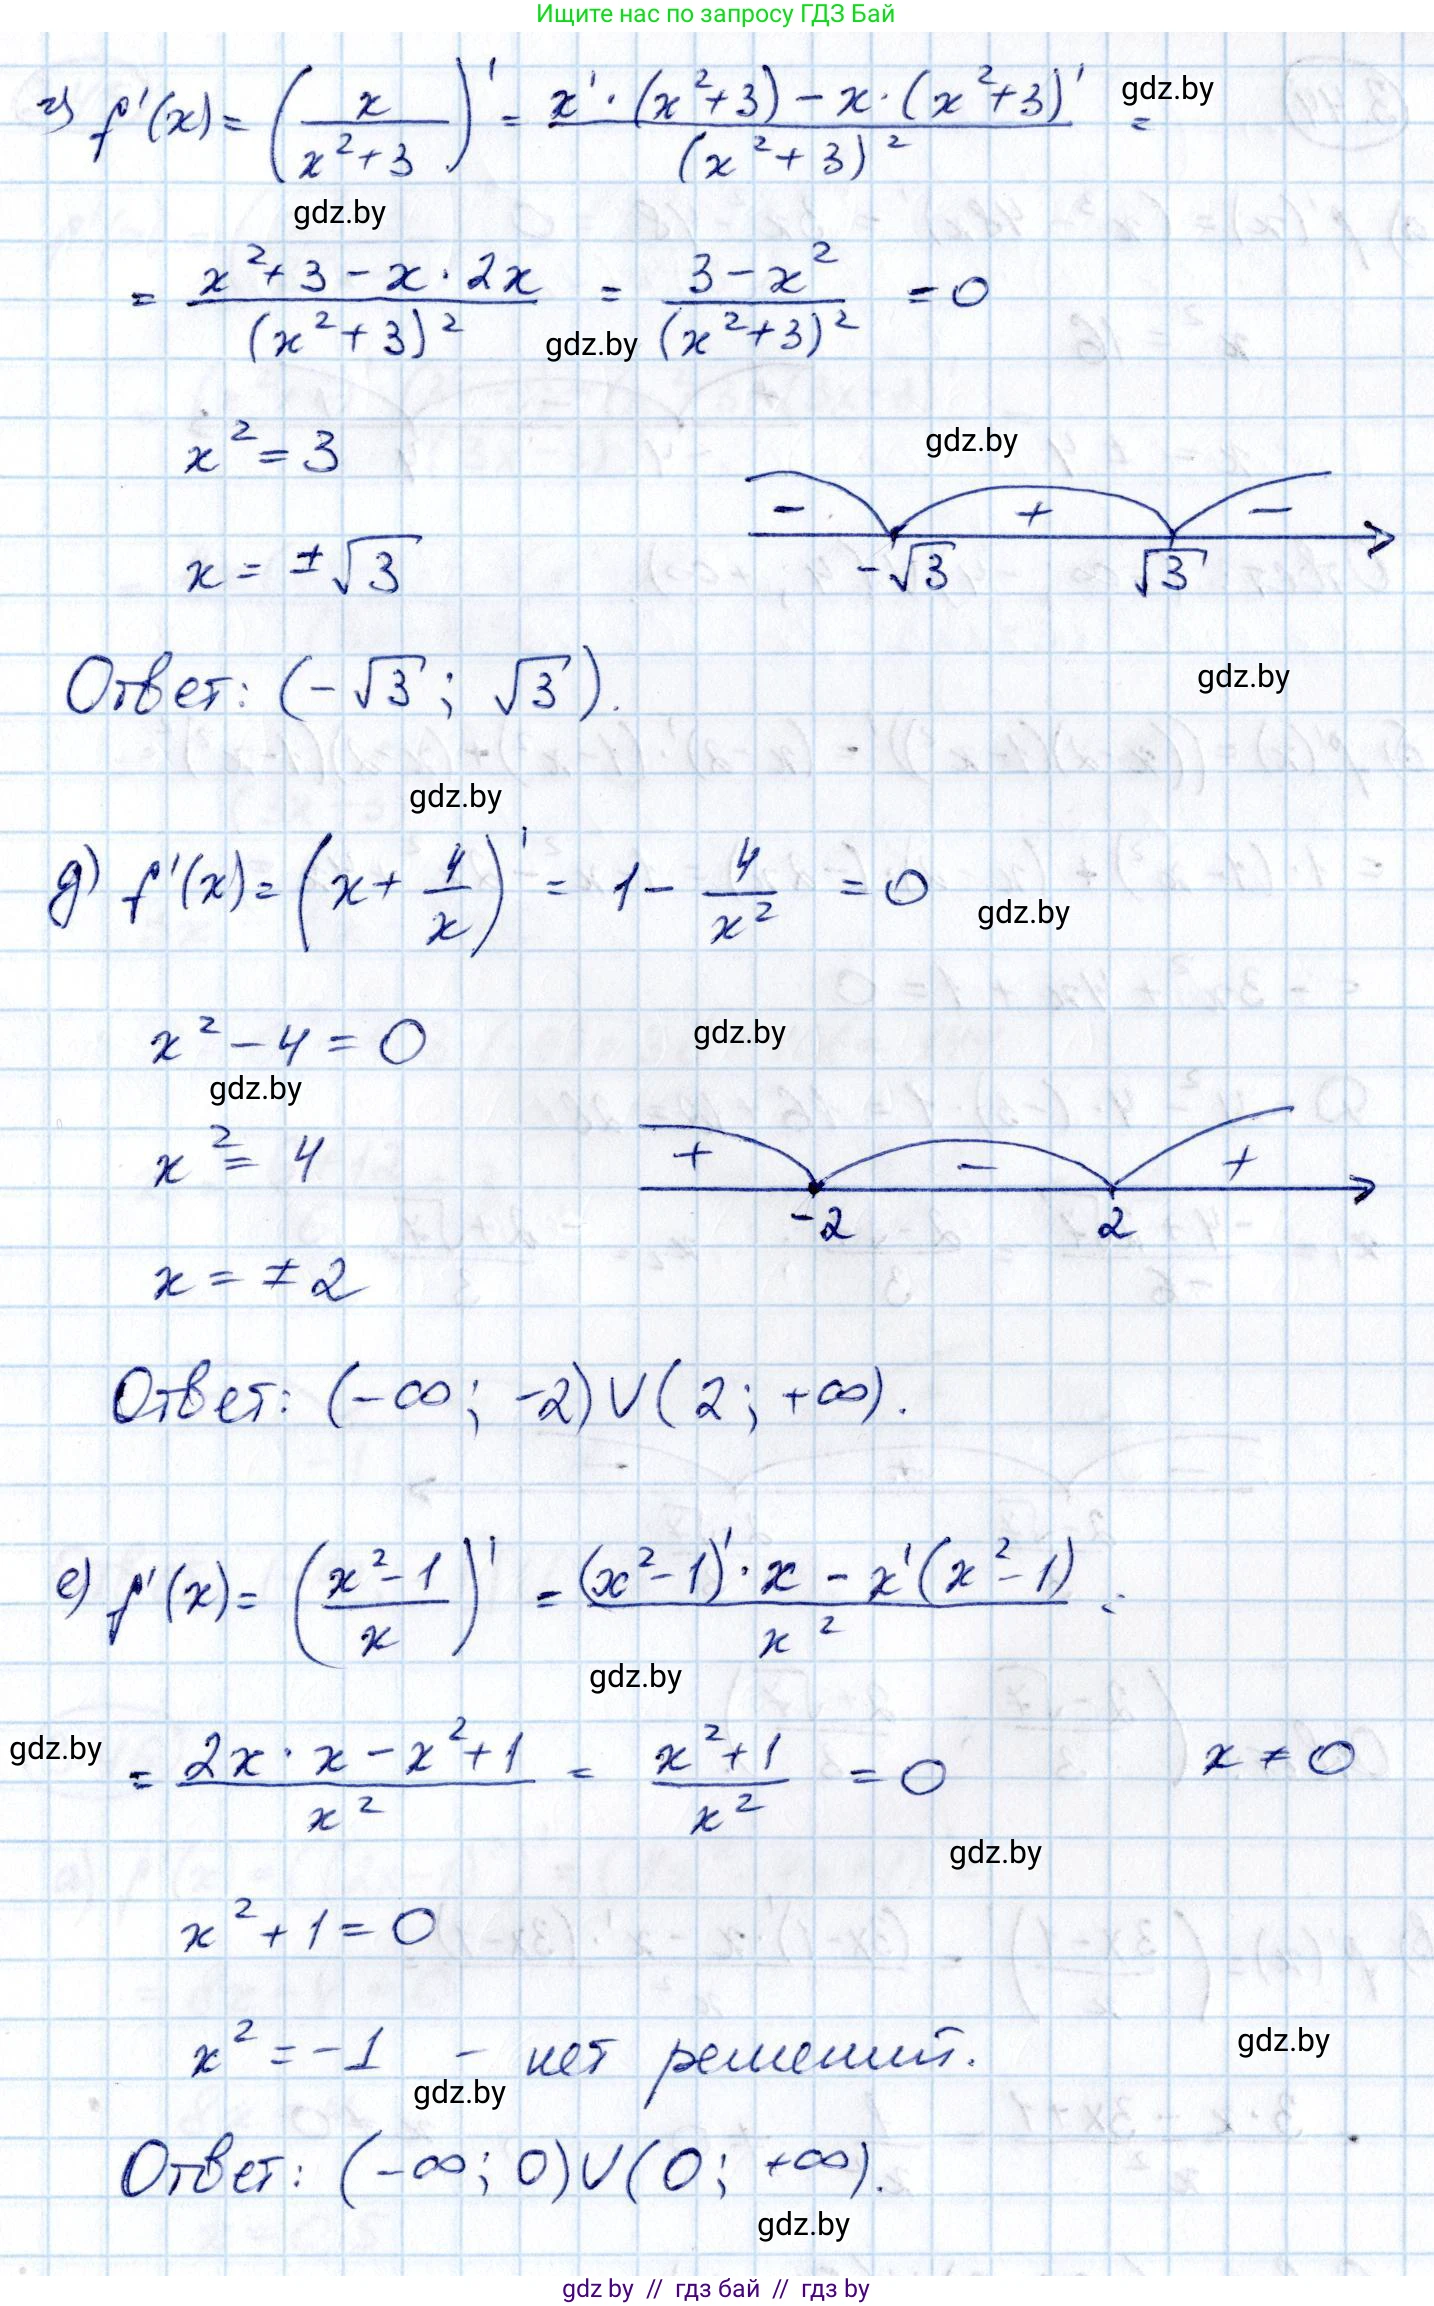 Ищите нас по запросу ГДЗ Бай
г) f'(x) = (x / (x² + 3))' = (x' · (x² + 3) − x · (x² + 3)') / (x² + 3)² =
gdz.by
gdz.by
= (x² + 3 − x · 2x) / (x² + 3)² = (3 − x²) / (x² + 3)² = 0
gdz.by
x² = 3
gdz.by
− + −
x = ±√3
−√3 √3
Ответ: (−√3; √3).
gdz.by
gdz.by
д) f'(x) = (x + 4/x)' = 1 − 4/x² = 0
gdz.by
x² − 4 = 0
gdz.by
gdz.by
x² = 4
+ − +
−2 2
x = ±2
Ответ: (−∞; −2) ∪ (2; +∞).
е) f'(x) = ((x² − 1) / x)' = ((x² − 1)' · x − x'(x² − 1)) / x² =
gdz.by
gdz.by
= (2x · x − x² + 1) / x² = (x² + 1) / x² = 0 x ≠ 0
gdz.by
x² + 1 = 0
x² = −1 − нет решений.
gdz.by
gdz.by
Ответ: (−∞; 0) ∪ (0; +∞).
gdz.by
gdz by // гдз бай // гдз by